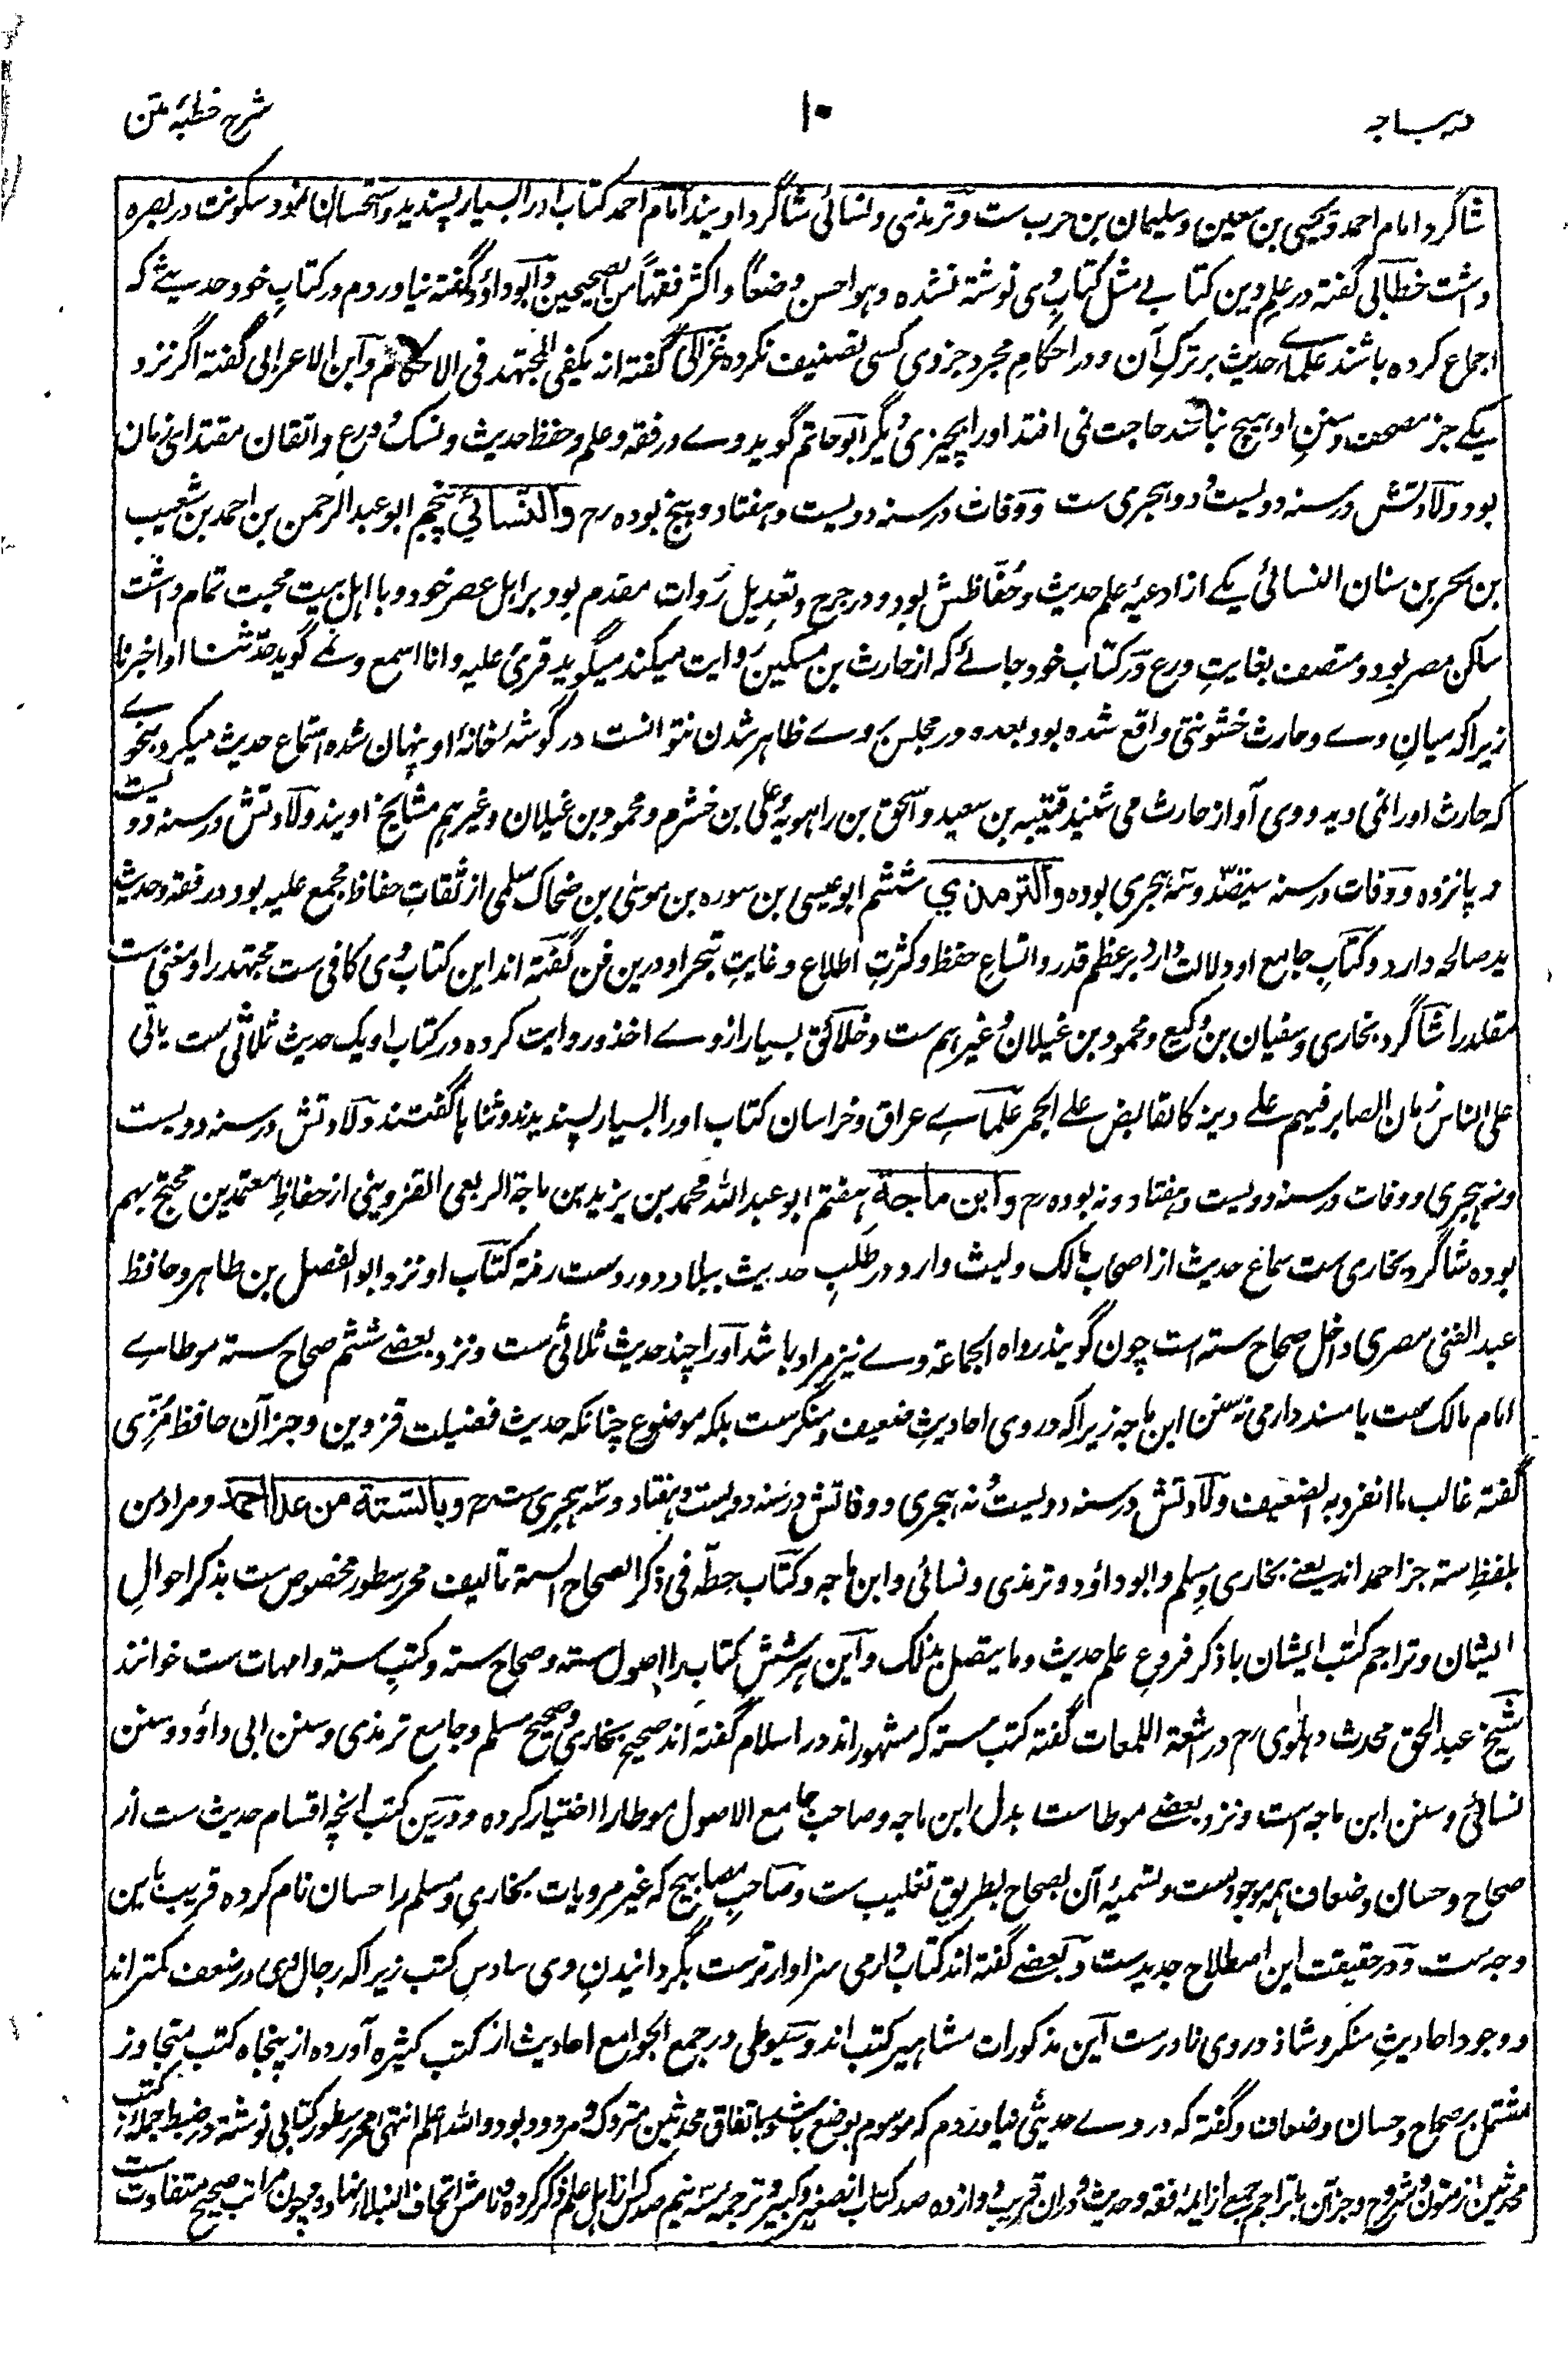 دیباجه
۱۰
شرح خطبۂ متن
شاگرد امام احمد و یحیی بن معین و سلیمان بن حرب ست و ترمذی و نسائی شاگرد اویند امام احمد کتاب او را بسیار پسندید و استحسان نمود سکونت در بصره
داشت خطابی گفته در علم دین کتابی بے مثل کتاب وی نوشته نشده وهو احسن وضعا واکثر فقها من الصحیحین و ابو داؤد گفته نیاوردم در کتاب خود حدیثے که
اجماع کرده باشند علمای حدیث بر ترک آن و در احکام مجرد جز وی کسی تصنیف نکرده غزالی گفته انه یکفی المجتهد فی الاحکام و ابن الاعرابی گفته اگر نزد
یکے جز مصحف و سنن او هیچ نباشد حاجت نمی افتد او را بچیزی دیگر ابو حاتم گوید وے در فقه و علم و حفظ حدیث و نسک و ورع و اتقان مقتدای زمان
بود ولادتش در سنه دو لیست و دو هجری ست و وفات در سنه دو لیست و هفتاد و پنج بوده رح والنسائي پنجم ابو عبد الرحمن بن احمد بن شعیب
بن بحر بن سنان النسائی یکے از اوعیۂ علم حدیث و حُفّاظش بود و در جرح و تعدیل رُوات مقدم بود بر اهل عصر خود و با اهل بیت محبت تمام داشت
ساکن مصر بود و متصف بغایتِ ورع و در کتاب خود جائے که از حارث بن مسکین روایت میکند میگوید قرئ علیه وانا اسمع و نمے گوید حدّثنا او اخبرنا
زیرا که میان وے و حارث خشونتی واقع شده بود بعده در مجلس وے ظاهر شدن نتوانست در گوشۂ خانۂ او پنهان شده استماع حدیث میکرد بنحوے
که حارث او را نمی دید و وی آواز حارث می شنید قتیبه بن سعید و اسحق بن راهویه و علی بن خشرم و محمود بن غیلان و غیرهم مشایخ اویند ولادتش در سنه دو لیست
و پانزده و وفات در سنه سیصد و سه هجری بوده والترمذي ششم ابو عیسی بن سوره بن موسیٰ بن ضحاک سلمی از ثقات حفاظ مجمع علیه بود در فقه و حدیث
ید صالحه دارد و کتاب جامع او دلالت دارد بر عظم قدر و اتساع حفظ و کثرت اطلاع و غایتِ تبحر او درین فن گفته اند این کتاب وی کافی ست مجتهد را و مغنی ست
مقلد را شاگرد بخاری و سفیان بن وکیع و محمود بن غیلان و غیرهم ست و خلائق بسیار از وے اخذ و روایت کرده در کتاب او یک حدیث ثلاثی ست یاتی
علی الناس زمان الصابر فیهم علے دینه کالقابض علے الجمر علماے عراق و خراسان کتاب او را بسیار پسندیدند و ثناها گفتند ولادتش در سنه دو لیست
و نه هجری و وفات در سنه دو لیست و هفتاد و نه بوده رح وابن ماجة هفتم ابو عبد الله محمد بن یزید بن ماجة الربعی القزوینی از حفاظ معتمدین محتج بهم
بوده شاگرد بخاری ست سماع حدیث از اصحاب مالک و لیث دارد در طلب حدیث ببلاد دور دست رفته کتاب او نزد ابو الفضل بن طاهر و حافظ
عبد الغنی مصری داخل صحاح سته است چون گویند رواه الجماعة وے نیز مراد باشد او را چند حدیث ثلاثی ست و نزد بعضے ششم صحاح سته موطاے
امام مالک ست یا مسند دارمی نه سنن ابن ماجه زیرا که در وی احادیث ضعیف و منکر ست بلکه موضوع چنانکه حدیث فضیلت قزوین و جز آن حافظ مُزّی
گفته غالب ما انفرد به الضعیف ولادتش در سنه دو لیست و نه هجری و وفاتش در سنه دو لیست و هفتاد و سه هجری ست رح وبالستة من عدا احمد و مراد من
بلفظ سته جز احمد اند یعنے بخاری و مسلم و ابو داؤد و ترمذی و نسائی و ابن ماجه و کتاب حطّه فی ذکر الصحاح الستة تألیف محرر سطور مخصوص ست بذکر احوالِ
ایشان و تراجم کتب ایشان با ذکر فروع علم حدیث و ما یتصل بذلک و این هر شش کتاب را اصول سته و صحاح سته و کتب سته و امهات ست خوانند
شیخ عبد الحق محدث دهلوی رح در اشعة اللمعات گفته کتب سته که مشهور اند در اسلام گفته اند صحیح بخاری و صحیح مسلم و جامع ترمذی و سنن ابی داؤد و سنن
نسائی و سنن ابن ماجه است و نزد بعضے موطاست بدل ابن ماجه و صاحب جامع الاصول موطا را اختیار کرده و درین کتب انچه اقسام حدیث ست از
صحاح و حسان و ضعاف همه موجود ست و تسمیۂ آن بصحاح بطریق تغلیب ست و صاحب مصابیح که غیر مرویات بخاری و مسلم را حسان نام کرده قریب باین
وجه ست و در حقیقت این اصطلاح جدید ست و بعضے گفته اند کتاب دارمی سزاوارتر ست بگردانیدن وی سادس کتب زیرا که رجال وی در ضعف کمتر اند
و وجود احادیثِ منکر و شاذ در وی نادر ست این مذکورات مشاهیر کتب اند و سیوطی در جمع الجوامع احادیث از کتب کثیره آورده از پنجاه کتب متجاوز
مشتمل بر صحاح و حسان و ضعاف و گفته که در وے حدیثی نیاوردم که موسوم بوضع باشد و باتفاق محدثین متروک و مردود بود والله اعلم انتهی محرر سطور کتابی نوشته در ضبط جملۂ کتب
محدثین از متون و شروح و جز آن با تراجم جمعے از ایمۂ فقه و حدیث و دران قریب دوازده صد کتاب از صغیر و کبیر و ترجمۂ سه نیم صد کس از اهل علم ذکر کرده و نامش اتحاف النبلاء نهاده و چون مراتب صحیح متفاوت ست